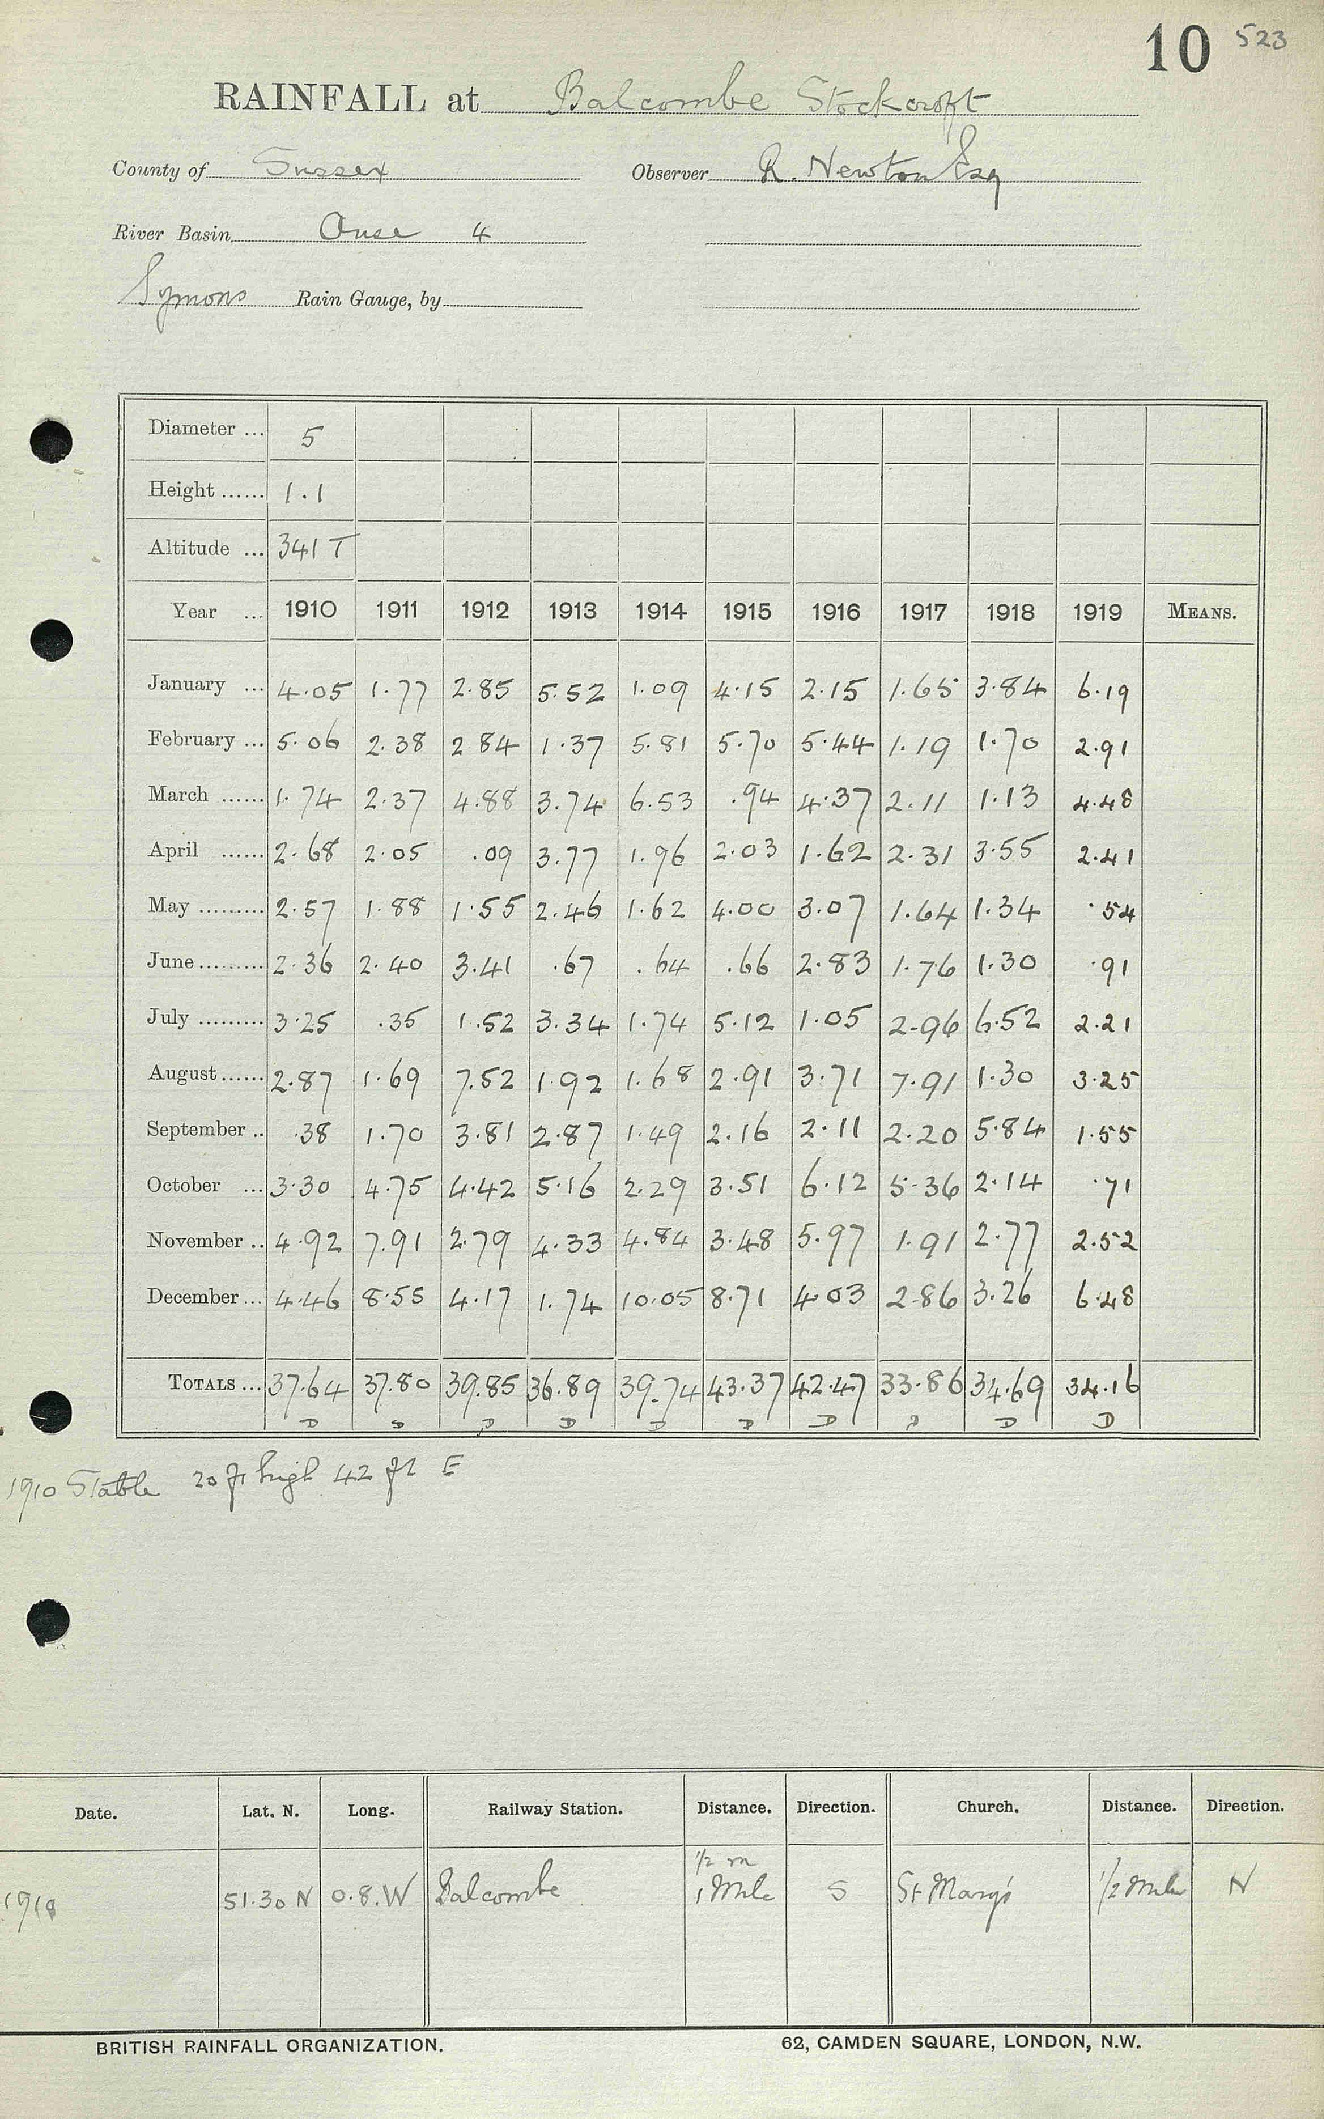 10 523
RAINFALL at Balcombe Stockcroft
County of Sussex Observer R. Newton Esq
River Basin Ouse 4
Symons Rain Gauge, by
Diameter ... 5
Height ...... 1.1
Altitude ... 341 T
Year ... 1910 1911 1912 1913 1914 1915 1916 1917 1918 1919 MEANS.
January ... 4.05 1.77 2.85 5.52 1.09 4.15 2.15 1.65 3.84 6.19
February ... 5.06 2.38 2 84 1.37 5.81 5.70 5.44 1.19 1.70 2.91
March ...... 1.74 2.37 4.88 3.74 6.53 .94 4.37 2.11 1.13 4.48
April ...... 2.68 2.05 .09 3.77 1.96 2.03 1.62 2.31 3.55 2.41
May ......... 2.57 1.88 1.55 2.46 1.62 4.00 3.07 1.64 1.34 .54
June ......... 2.36 2.40 3.41 .67 .64 .66 2.83 1.76 1.30 .91
July ......... 3.25 .35 1.52 3.34 1.74 5.12 1.05 2.96 6.52 2.21
August ...... 2.87 1.69 7.52 1.92 1.68 2.91 3.71 7.91 1.30 3.25
September .. .38 1.70 3.81 2.87 1.49 2.16 2.11 2.20 5.84 1.55
October ... 3.30 4.75 4.42 5.16 2.29 3.51 6.12 5.36 2.14 .71
November .. 4.92 7.91 2.79 4.33 4.84 3.48 5.97 1.91 2.77 2.52
December ... 4.46 8.55 4.17 1.74 10.05 8.71 4.03 2.86 3.26 6.48
TOTALS ... 37.64 37.80 39.85 36.89 39.74 43.37 42.47 33.86 34.69 34.16
D D D D D D D D D D
1910 Stable 20 ft high 42 ft E
Date. Lat. N. Long. Railway Station. Distance. Direction. Church. Distance. Direction.
1/2 m
1918 51.30 N 0.8.W Balcombe 1 Mile S St Mary's 1/2 Mile N
BRITISH RAINFALL ORGANIZATION. 62, CAMDEN SQUARE, LONDON, N.W.